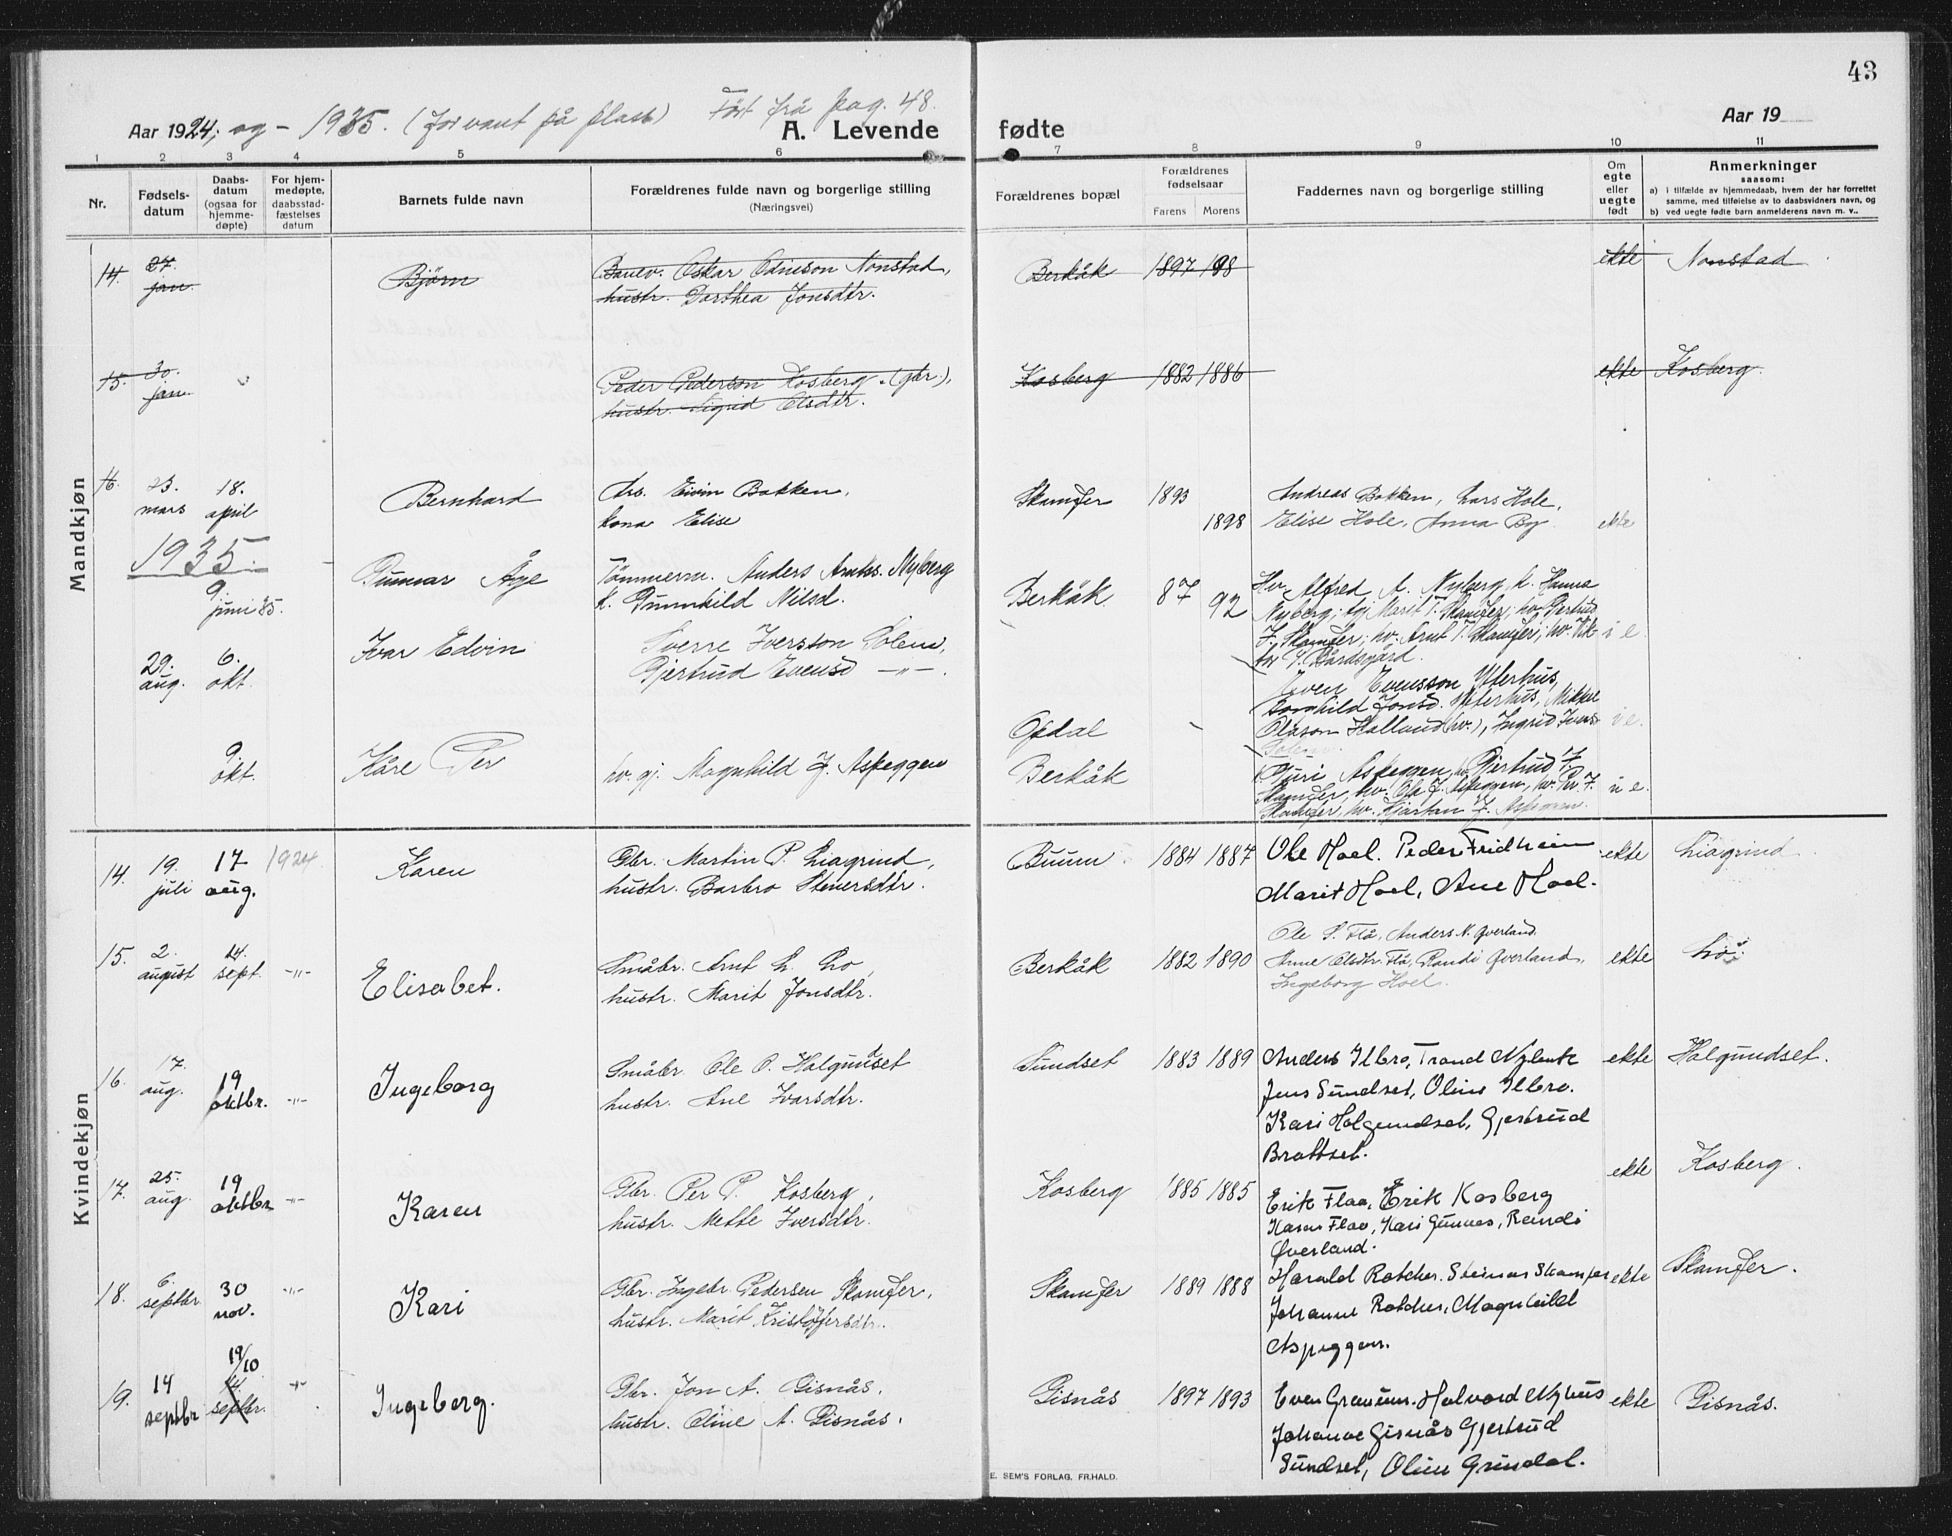 43
Aar 1924, og - 1935. (for vant på plass) Ført frå pag. 48.
A. Levende fødte
Aar 19
1 2 3 4 5 6 7 8 9 10 11
Nr.
Fødsels-
datum
Daabs-
datum
(ogsaa for
hjemme-
døpte)
For hjem-
medøpte,
daabsstad-
fæstelses
datum
Barnets fulde navn
Forældrenes fulde navn og borgerlige stilling
(Næringsvei)
Forældrenes bopæl
Forældrenes
fødselsaar
Farens Morens
Faddernes navn og borgerlige stilling
Om
egte
eller
uegte
født
Anmerkninger
saasom:
a) i tilfælde av hjemmedaab, hvem der har forrettet
samme, med tilføielse av to daabsvidners navn, og
b) ved uegte fødte barn anmelderens navn m. v..
Mandkjøn
14. 27. jan. Bjørn
Oskar Odinson Nonstad,
hustr. Dorthea Jonsdtr.
Berkåk 1897 1898 ekte Nonstad
15. 30. jan.
Peder Pederson Kosberg (gbr.),
hustr. Sigrid Olsdtr.
Kosberg 1882 1886 ekte Kosberg.
16. 23. mars 18. april Bernhard
Arb. Eivin Bakken,
kona Elise
Skamfer 1893 1898
Andreas Bakken, Lars Hole,
Elise Hole, Anna By.
ekte
1935.
9. juni 35. Gunnar Åge
Tømmerm. Anders Nyberg
k. Gunnhild Nilsd.
Berkåk 87 92
Hv. Alfred A. Nyberg, k. Hanna
Nyberg; gj. Marit T. Skamfer; hv. Gjertrud
F. Skamfer; hv. Arnt T. Skamfer; hv. Vik-
tor I. Bårdsgård.
i e.
29. aug. 6. okt. Ivar Edvin
Sverre Iversson Solem,
Gjertrud Evensd — " —.
Opdal
Even Evensson Ytterhus,
Borghild Jonsd. Ytterhus, Mikkel
Olason Halland (hv.), Ingrid Ivers
Solem.
i e.
9. okt. Kåre Per
hv. gj. Magnhild J. Aspeggen
Berkåk
Guri Aspeggen, hv. Gjertrud F.
Skamfer, hv. Ola J. Aspeggen, hv. Per F.
Skamfer, hv. Kjartan J. Aspeggen.
u e.
Kvindekjøn
14. 19. juli 17 aug. 1924 Karen
Gbr. Martin P. Liagrind,
hustr. Barbro Steinersdtr.
Buum 1884 1887
Ole Hoel. Peder Fridheim
Marit Hoel, Ane Hoel.
ekte Liagrind
15. 2. august 14. sept. -"- Elisabet.
Småbr. Arnt L. Lo,
hustr. Marit Jonsdtr.
Berkåk 1882 1890
Ole S. Flå, Anders N. Qverland.
Anne Olsdtr. Flå, Randi Qverland,
Ingeborg Hoel.
ekte Lo.
16. 17. aug. 19 oktbr. -"- Ingeborg
Småbr Ole O. Halgunset
hustr. Ane Ivarsdtr.
Sundset 1883 1889
Anders Ilbro, Trond Nylenk
Jens Sundset, Oline Ilbro.
Kari Halgundset, Gjertrud
Brattset.
ekte Halgundset.
17. 25. aug. 19 oktbr -"- Karen
Gbr. Per P. Kosberg,
hustr. Mette Iversdtr.
Kosberg 1885 1885
Erik Flaa, Erik Kosberg
Karen Flaa, Kari Gunnes, Randi
Øverland.
ekte Kosberg.
18. 6. septbr 30 nov. -"- Kari
Gbr. Ingebr. Pedersen Skamfer,
hustr. Marit Kristofersdtr.
Skamfer 1889 1888
Harald Rotcher. Steinar Skamfer
Johanne Rotcher, Magnhild
Aspeggen.
ekte Skamfer.
19. 14 septbr 19/10 14 septbr. -"- Ingeborg.
Gbr. Jon A. Gisnås,
hustr. Oline A. Gisnås.
Gisnås 1897 1893
Even Halvord Nyhus
Johanne Gisnås Gjertrud
Sundset, Oline Grindal.
ekte Gisnås.
E. SEM'S FORLAG, FR.HALD.